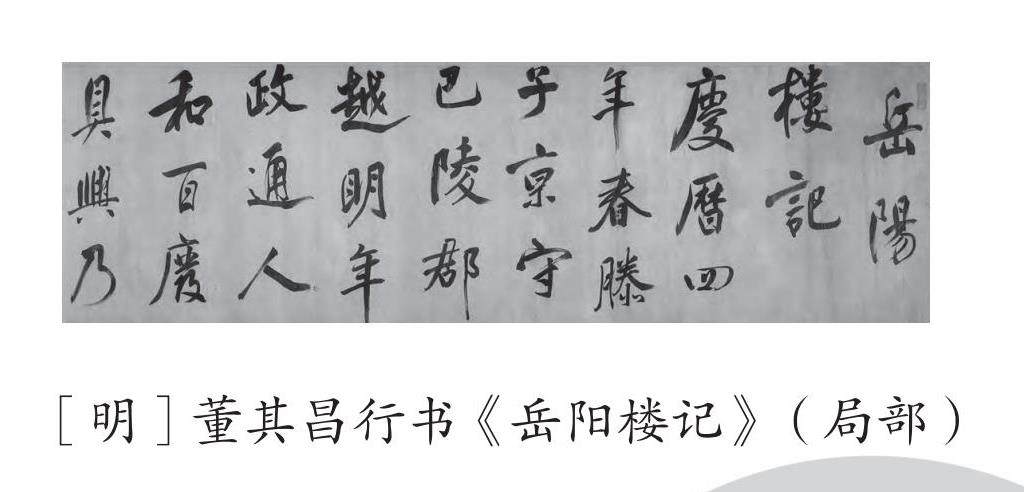 岳陽
樓記
慶曆四
年春滕
子京守
巴陵郡
越明年
政通人
和百廢
具興乃
[明]董其昌行书《岳阳楼记》(局部)